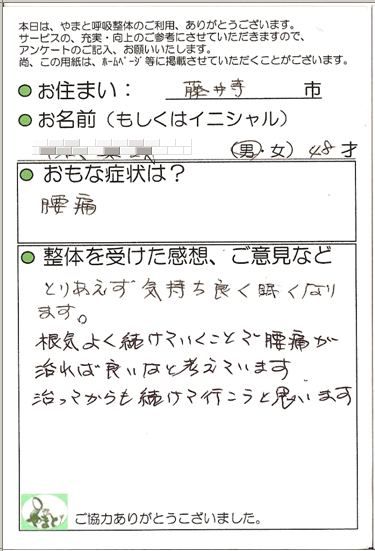 本日は、やまと呼吸整体のご利用、ありがとうございます。
サービスの、充実・向上のご参考にさせていただきますので、
アンケートのご記入、お願いいたします。
尚、この用紙は、ﾎｰﾑﾍﾟｰｼﾞ等に掲載させていただくことがございます。
お住まい： 藤井寺 市
お名前（もしくはイニシャル）
（男・女） 48 才
おもな症状は？
腰痛
整体を受けた感想、ご意見など
とりあえず気持ち良く眠くなり
ます。
根気よく続けていくことで腰痛が
治れば良いなと考えています
治ってからも続けて行こうと思います
やまと
ご協力ありがとうこざいました。